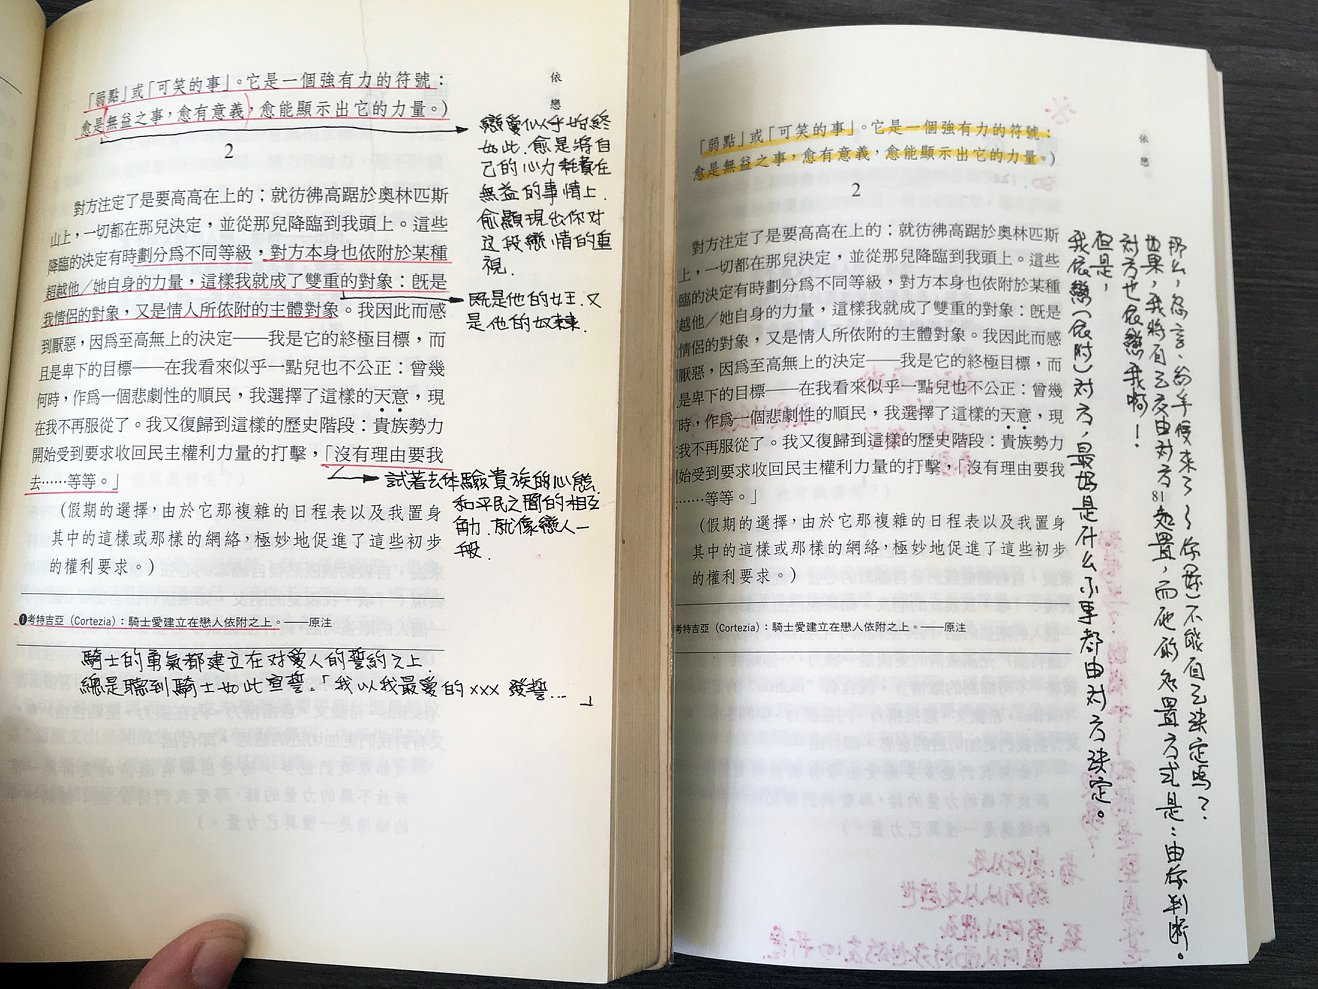 依戀
「弱點」或「可笑的事」。它是一個強有力的符號：
愈是無益之事，愈有意義，愈能顯示出它的力量。）
2
對方注定了是要高高在上的；就彷彿高踞於奧林匹斯
山上，一切都在那兒決定，並從那兒降臨到我頭上。這些
降臨的決定有時劃分爲不同等級，對方本身也依附於某種
超越他／她自身的力量，這樣我就成了雙重的對象：旣是
我情侶的對象，又是情人所依附的主體對象。我因此而感
到厭惡，因爲至高無上的決定——我是它的終極目標，而
且是卑下的目標——在我看來似乎一點兒也不公正：曾幾
何時，作爲一個悲劇性的順民，我選擇了這樣的天意，現
在我不再服從了。我又復歸到這樣的歷史階段：貴族勢力
開始受到要求收回民主權利力量的打擊，「沒有理由要我
去……等等。」
（假期的選擇，由於它那複雜的日程表以及我置身
其中的這樣或那樣的網絡，極妙地促進了這些初步
的權利要求。）
❶考特吉亞（Cortezia）：騎士愛建立在戀人依附之上。——原注
戀愛似乎始終
如此.愈是將自
己的心力耗費在
無益的事情上.
愈顯現出你对
这段戀情的重
視.
既是他的女王.又
是他的奴隸.
試著去体驗貴族的心態.
和平民之間的相互
角力.就像戀人一
般.
騎士的勇氣都建立在对愛人的誓約之上.
總是聽到騎士如此宣誓.「我以我最愛的xxx 發誓...」
依戀
「弱點」或「可笑的事」。它是一個強有力的符號：
愈是無益之事，愈有意義，愈能顯示出它的力量。）
2
對方注定了是要高高在上的；就彷彿高踞於奧林匹斯
上，一切都在那兒決定，並從那兒降臨到我頭上。這些
臨的決定有時劃分爲不同等級，對方本身也依附於某種
越他／她自身的力量，這樣我就成了雙重的對象：旣是
情侶的對象，又是情人所依附的主體對象。我因此而感
厭惡，因爲至高無上的決定——我是它的終極目標，而
是卑下的目標——在我看來似乎一點兒也不公正：曾幾
時，作爲一個悲劇性的順民，我選擇了這樣的天意，現
我不再服從了。我又復歸到這樣的歷史階段：貴族勢力
始受到要求收回民主權利力量的打擊，「沒有理由要我
……等等。」
（假期的選擇，由於它那複雜的日程表以及我置身
其中的這樣或那樣的網絡，極妙地促進了這些初步
的權利要求。）
考特吉亞（Cortezia）：騎士愛建立在戀人依附之上。——原注
81
那么，你言，翁年便來了～你（妳）不能自己決定嗎？
如果，我將自己交由对方処置，而他的処置方式是：由你判断。
对方也依戀我啊！
但是，
我依戀（依附）对方，最好是什么小事都由对方決定。